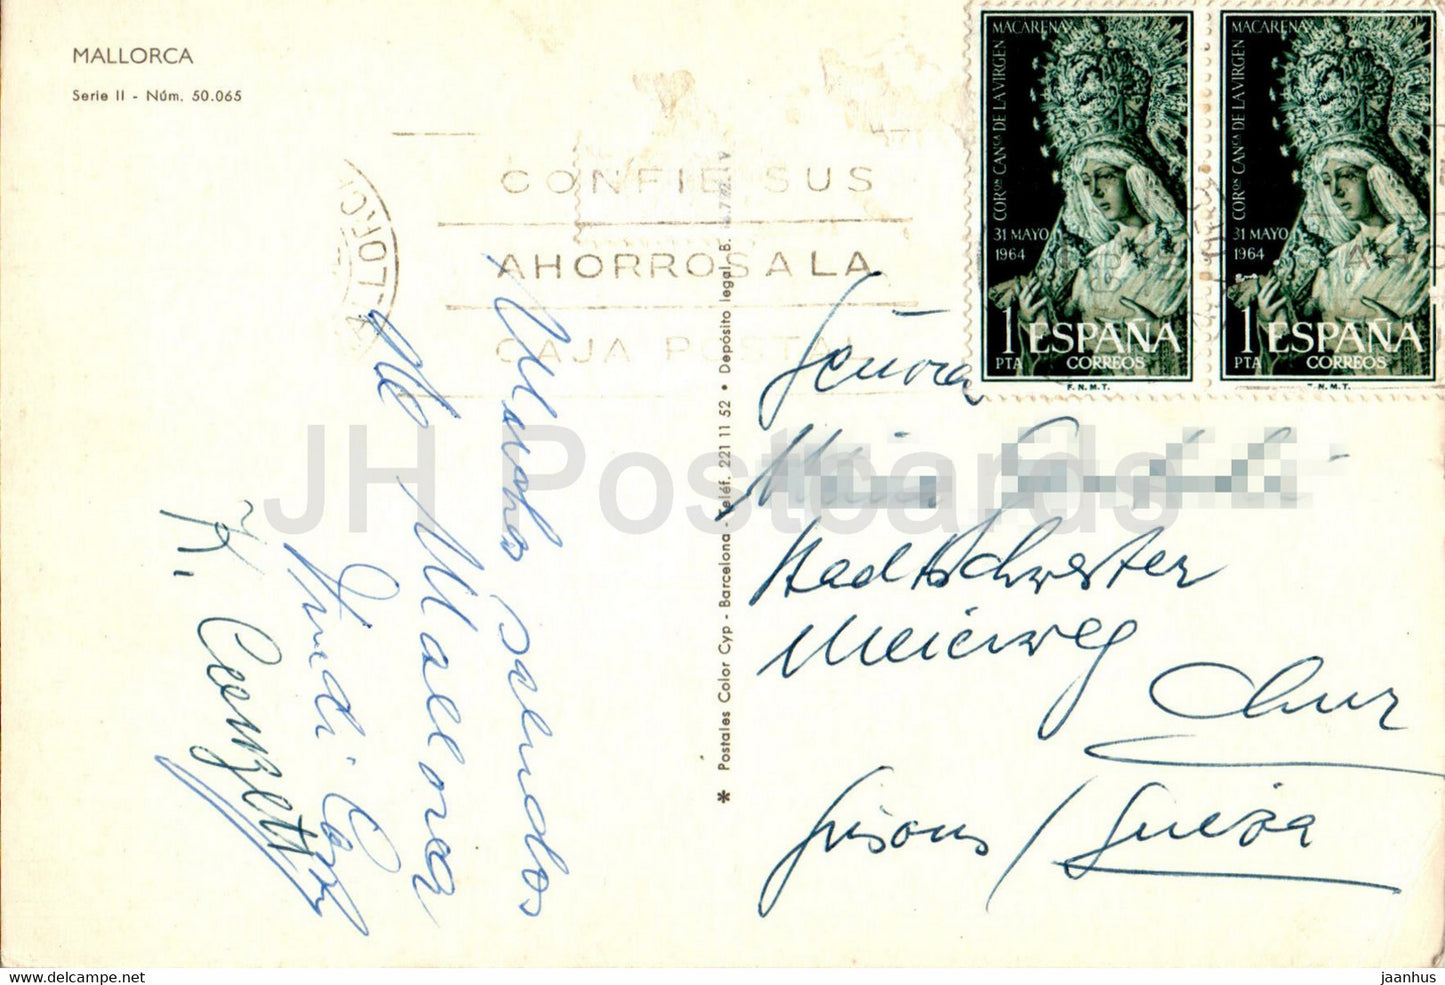 MALLORCA
Serie II - Núm. 50.065
CONFIE SUS
AHORROS A LA
CAJA POSTAL
MACARENA
CORON CANCA DE LA VIRGEN
31 MAYO
1964
1 ESPAÑA
PTA CORREOS
F.N.M.T.
MACARENA
CORON CANCA DE LA VIRGEN
31 MAYO
1964
1 ESPAÑA
PTA CORREOS
F.N.M.T.
Muchos saludos
de Mallorca
K. Conzetti
* Postales Color Cyp - Barcelona - Teléf. 221 11 52 • Depósito legal B.
Señora
Stadtschwester
Meierweg
Chur
Grisons / Sueiza
JH Postcards
www.delcampe.net
jaanhus